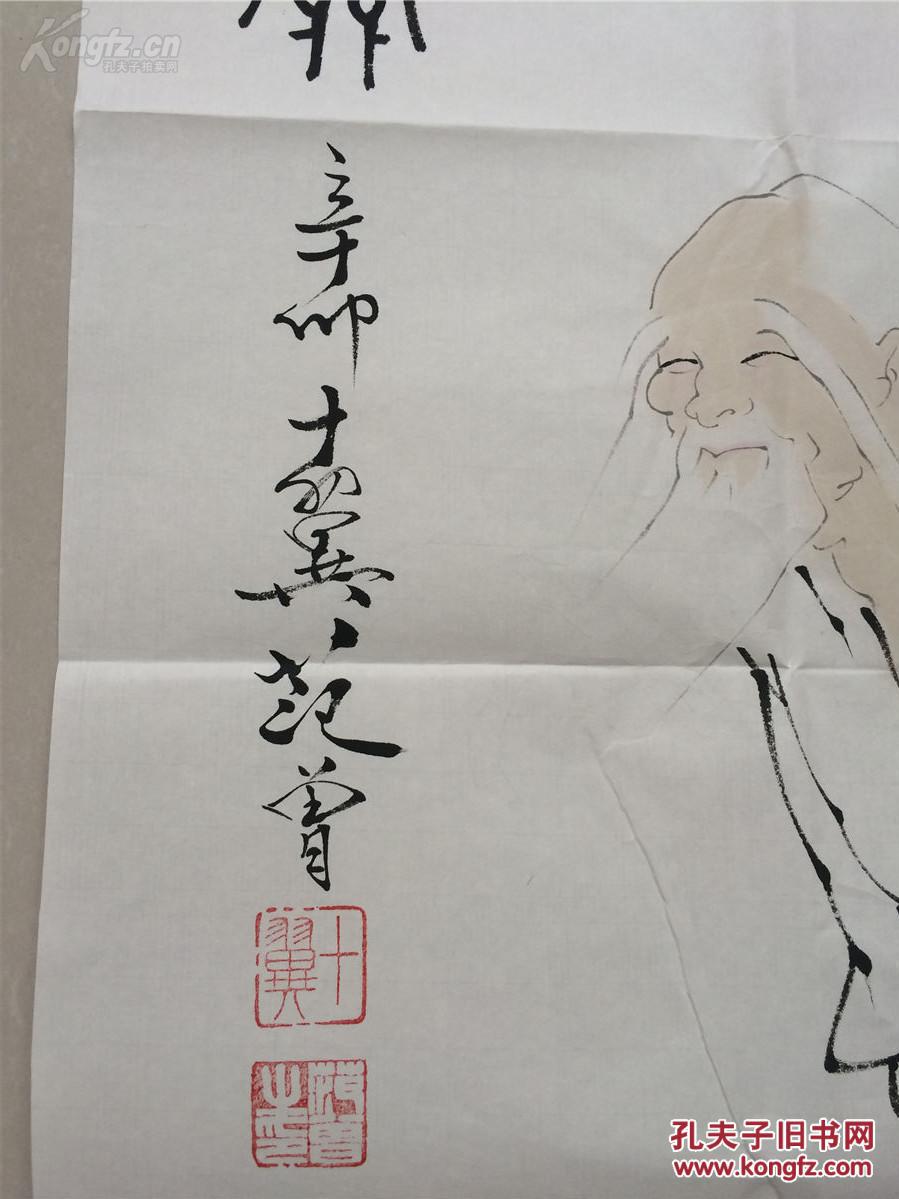 Kongfz.cn
孔夫子拍卖网
辛卯十翼范曾
十翼
范曾
孔夫子旧书网
www.kongfz.com